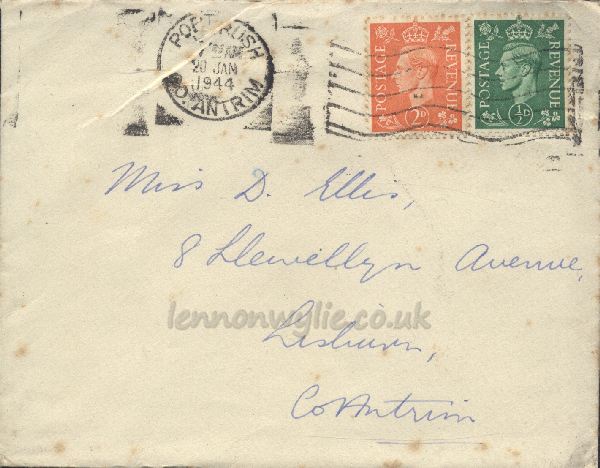 PORTRUSH
20 JAN
1944
CO. ANTRIM
POSTAGE REVENUE
2D
POSTAGE REVENUE
½D
Miss D. Ellis,
8 Llewellyn Avenue,
lennonwylie.co.uk
Lisburn,
Co Antrim